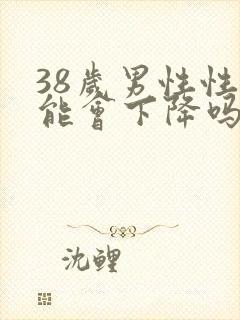 38歲男性性
能會下降吗
沈鲤